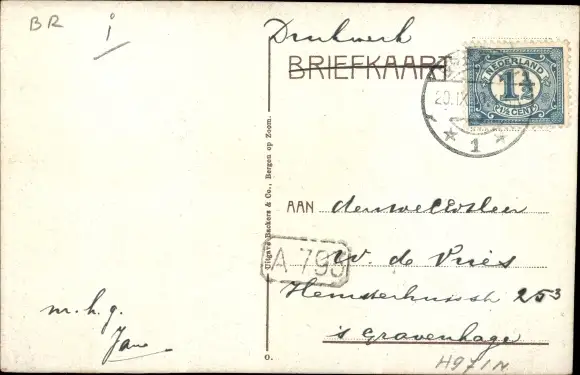 BR
i
Drukwerk
BRIEFKAART
NEDERLAND
1½
1½ CENT
20.IX
1
Uitgave Backers & Co., Bergen op Zoom.
AAN den weledelen
A 793
W. de Vries
Hemsterhuisstr 253
's Gravenhage
m.h.g.
Jan
O.
H971N